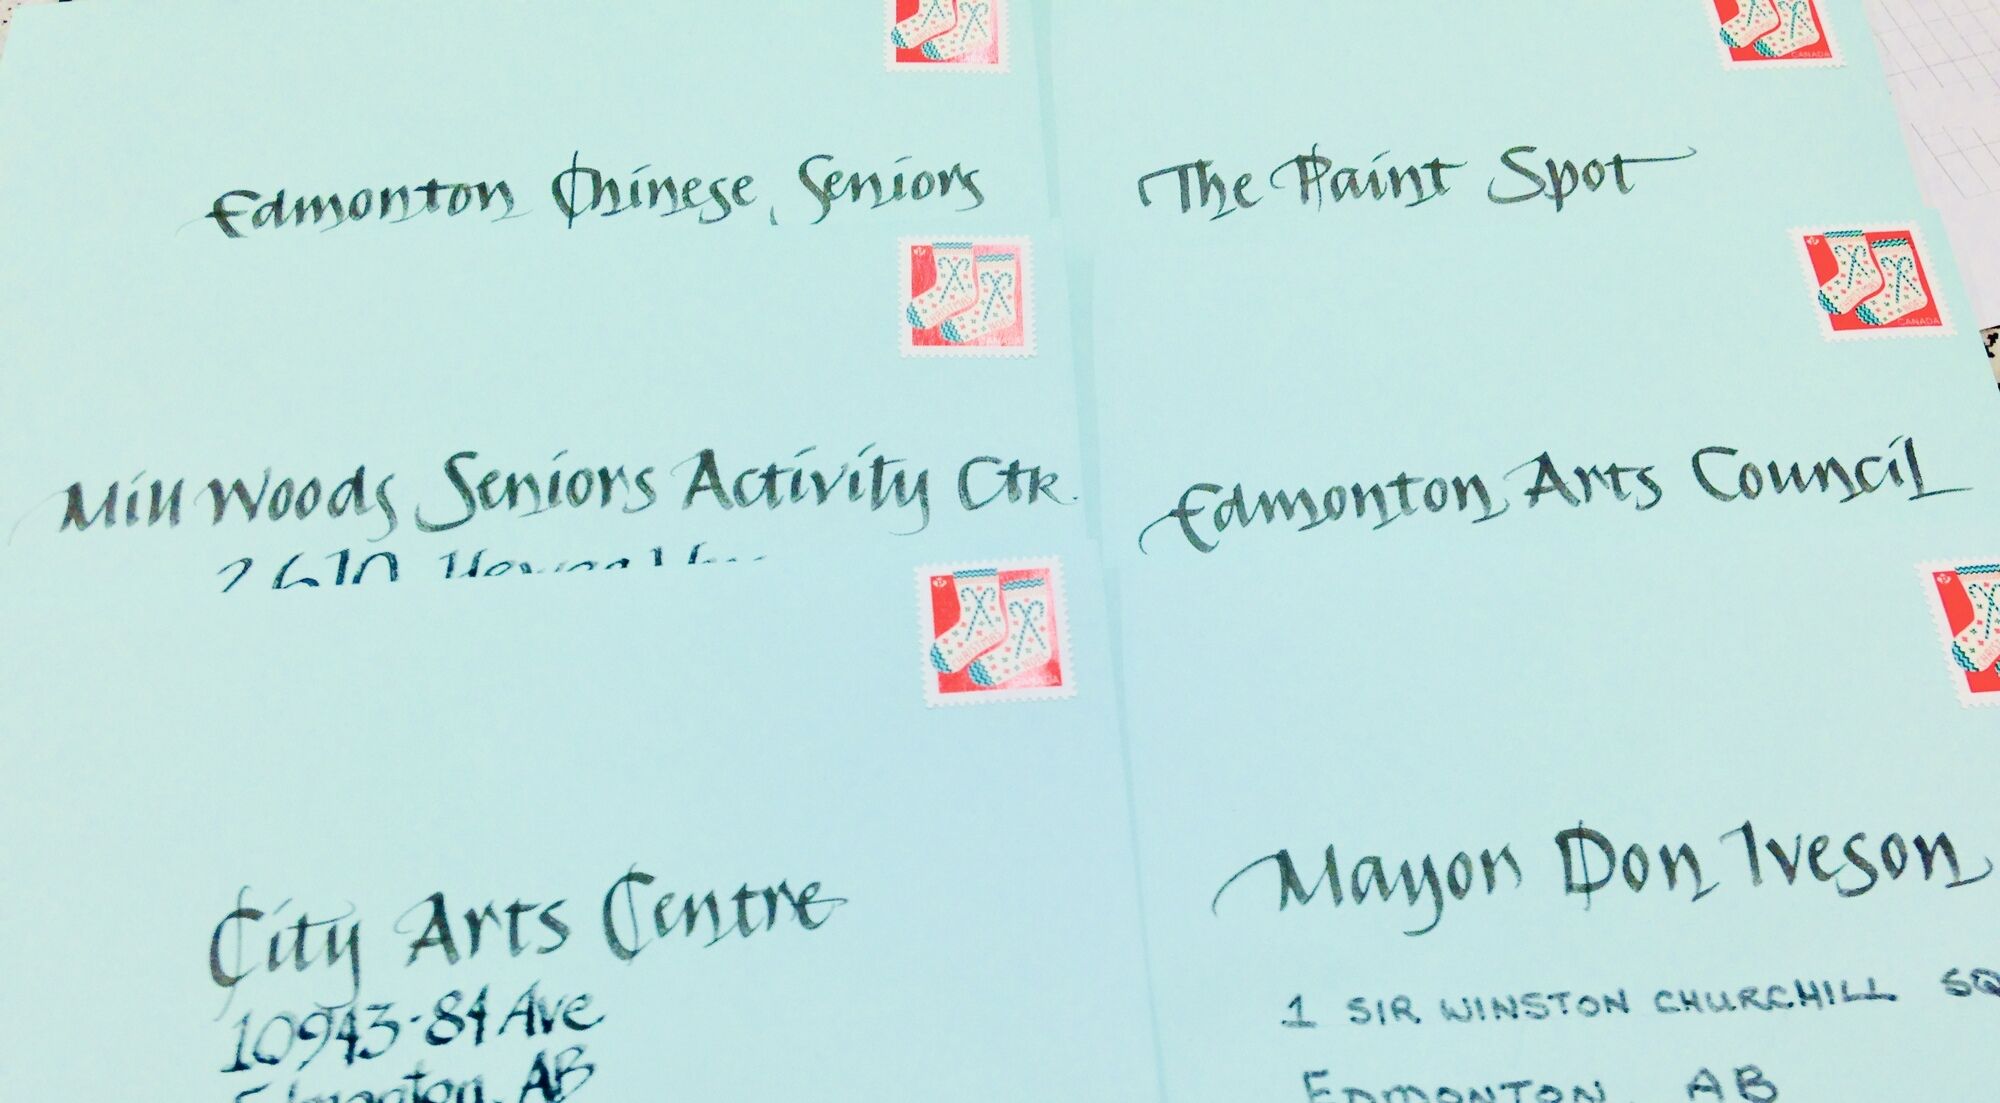 Edmonton Chinese Seniors
The Paint Spot
CANADA
CHRISTMAS
NOEL
CANADA
Mill Woods Seniors Activity Ctr.
2610
Edmonton Arts Council
CHRISTMAS
NOEL
CANADA
City Arts Centre
10943-84 Ave
Edmonton, AB
Mayor Don Iveson
1 SIR WINSTON CHURCHILL SQ
EDMONTON, AB